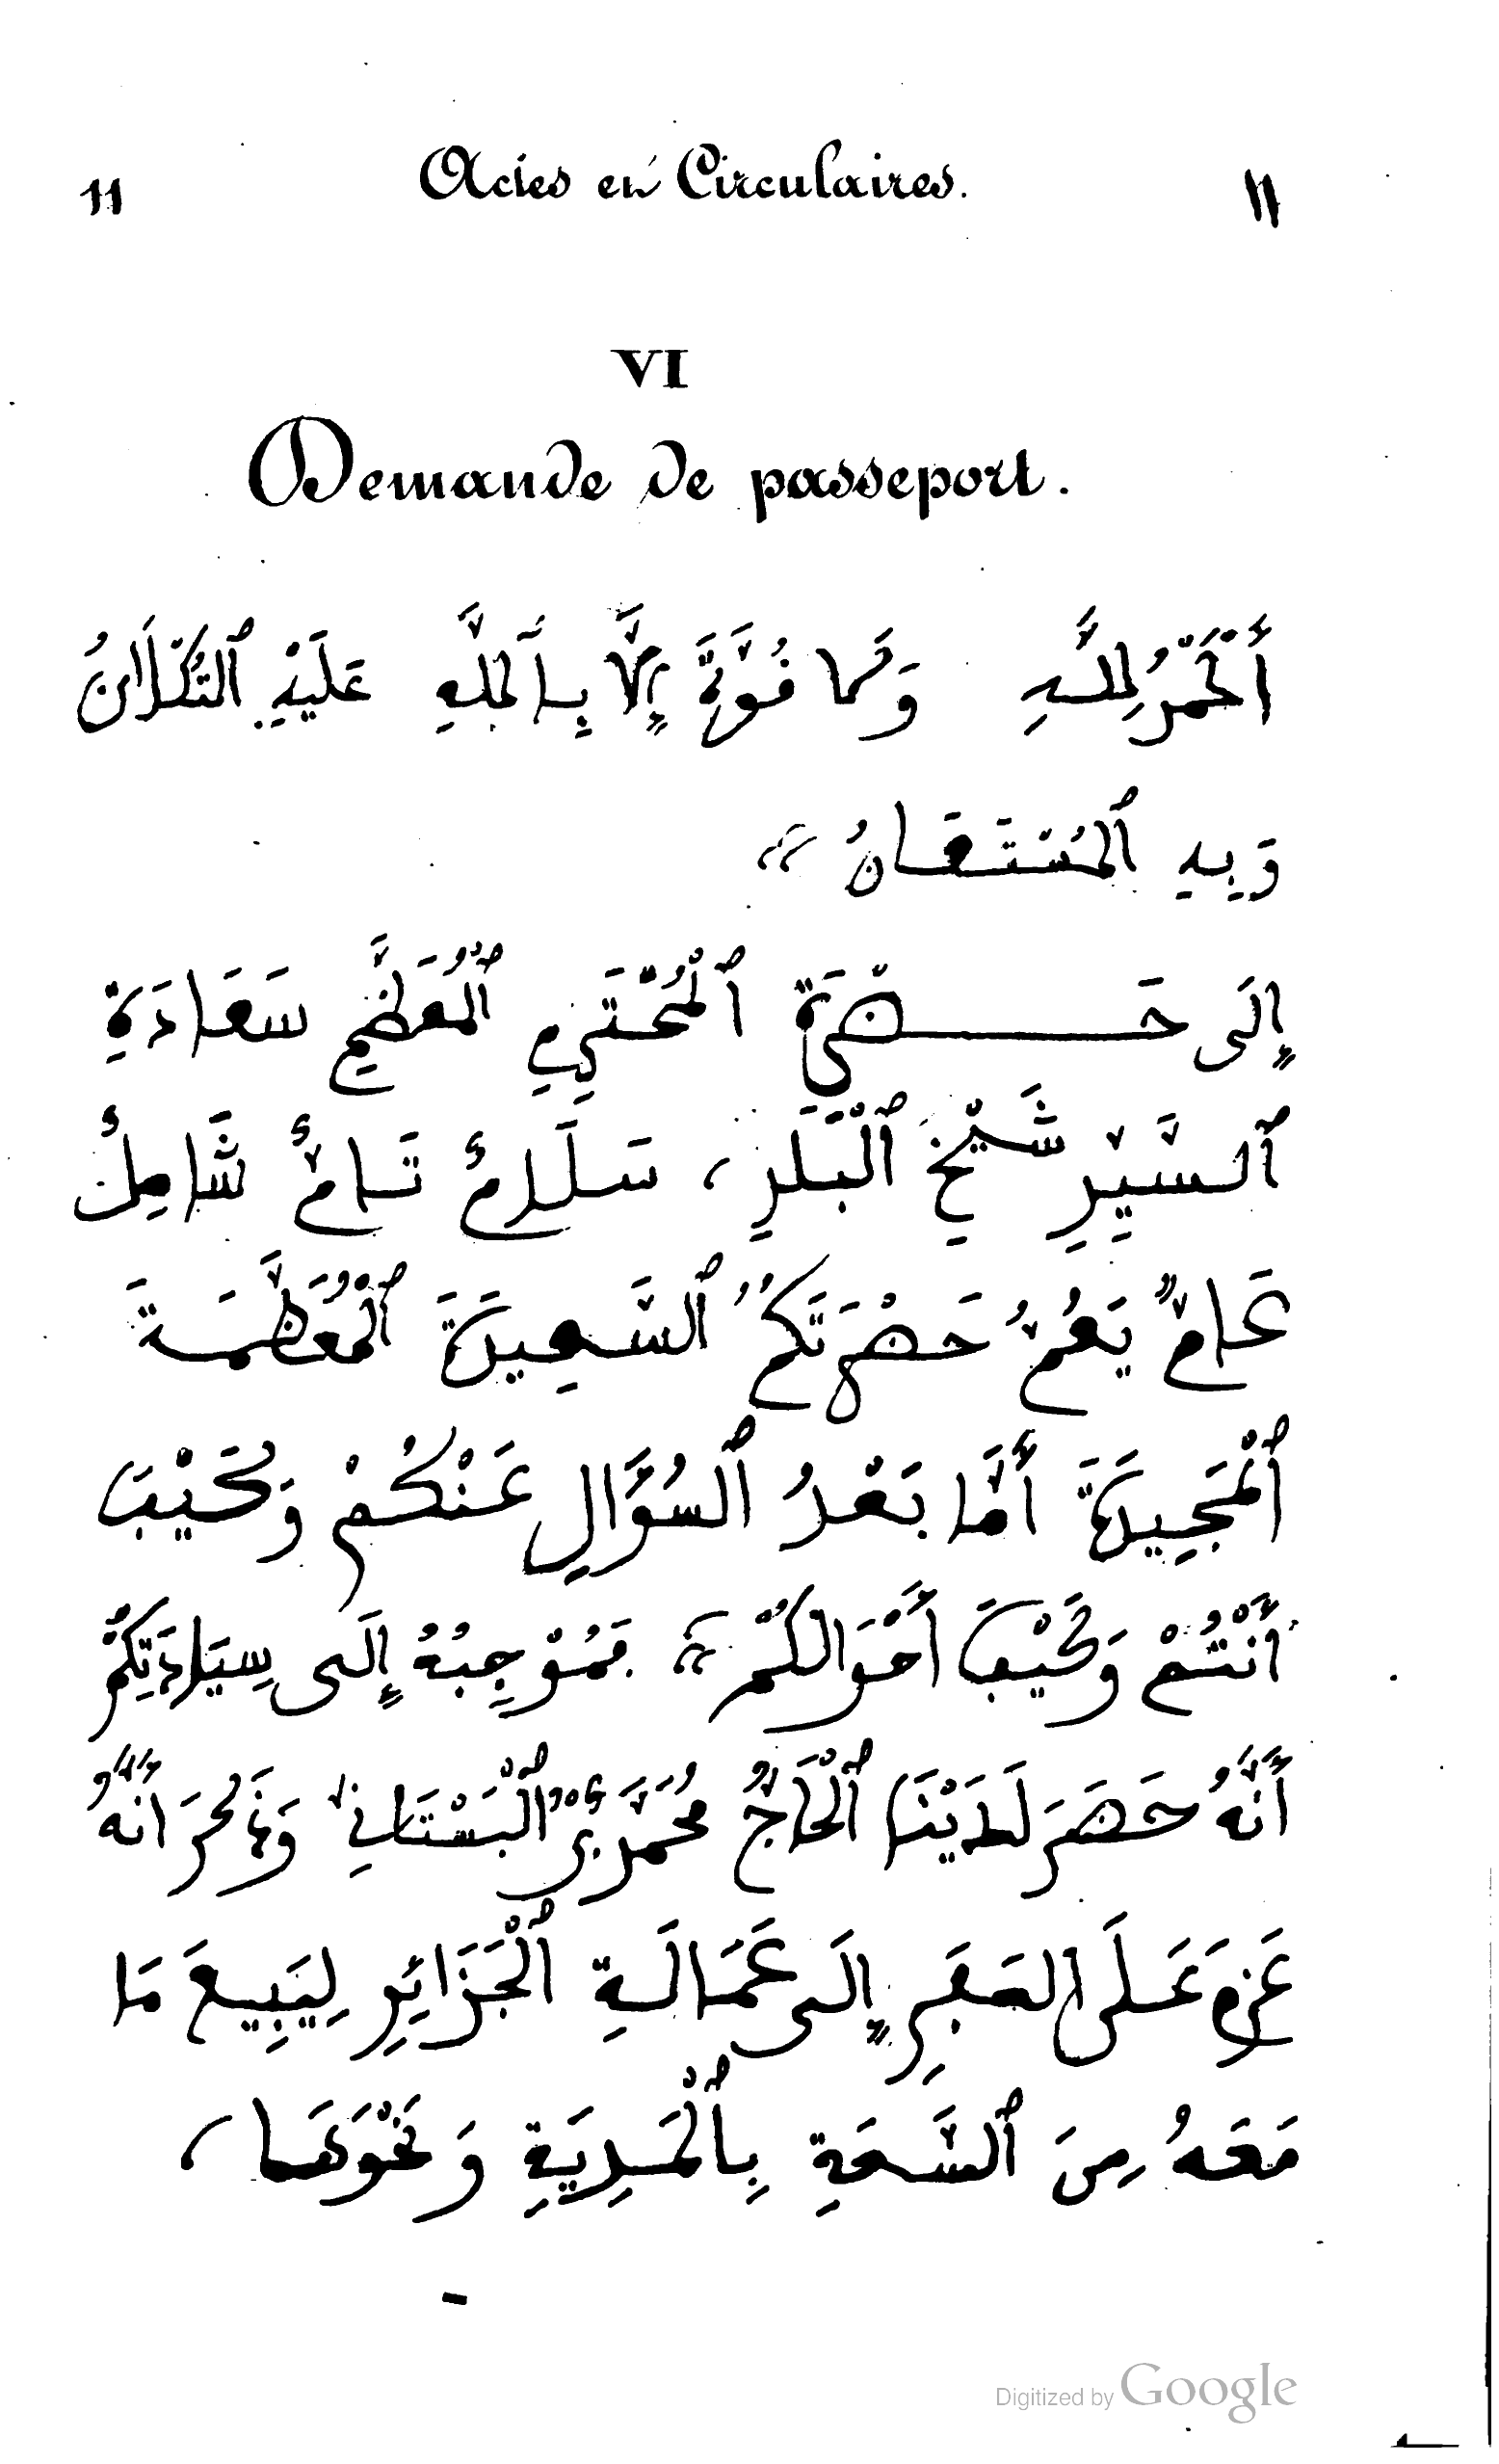 11 Actes et Circulaires. ١١
VI
Demande de passeport.
أَلْحَمْدُ لِلَّـهِ وَلَا قُوَّةَ إِلَّا بِٱللَّهِ عَلَيْهِ ٱلتُّكْلَانُ
وَبِهِ ٱلْمُسْتَعَانُ
إِلَى حَـضْرَةِ ٱلْمُحْتَرَمِ ٱلْمُعَظَّمِ سَعَادَةِ
ٱلسَّيِّدِ شَيْخِ ٱلْبَلَدِ، سَلَامٌ تَامٌّ شَامِلٌ
عَامٌّ يَعُمُّ حَضْرَتَكُمُ ٱلسَّعِيدَةَ ٱلْمُعَظَّمَةَ
ٱلْمَجِيدَةَ أَمَّا بَعْدُ ٱلسُّؤَالِ عَنْكُمْ وَكَيْفَ
أَنْتُمْ وَكَيْفَ أَحْوَالكُمْ فَمُوْجِبُهُ إِلَى سِيَادَتِكُمْ
أَنَّهُ حَضَرَ لَدَيْنَا ٱلْحَاجُّ مُحَمَّدٌ بْنُ ٱلْبُسْتَانِي وَذَكَرَ أَنَّهُ
عَزَمَ عَلَى السَّفَرِ إِلَى عَمَالَةِ ٱلْجَزَائِرِ لِيَبِيعَ مَا
مَعَهُ مِنَ ٱلسِّلْعَةِ بِٱلْمَدِيَةِ وَنَحْوِهَا،
Digitized by Google